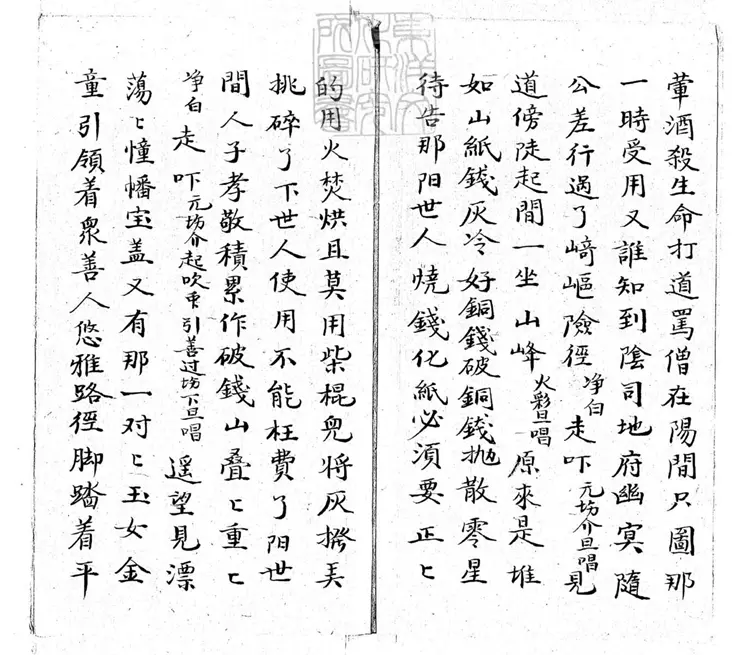 葷酒殺生命打道罵僧在陽間只圖那
一時受用又誰知到陰司地府幽冥隨
公差行過了﨑嶇險徑 净白 走吓 元坊介旦唱 見
道傍陡起間一坐山峰 火彩旦唱 原來是堆
如山紙錢灰冷好銅錢破銅錢抛散零星
待告那阳世人燒錢化紙必須要正〻
的用火焚烘且莫用柴棍兒將灰撥弄
挑碎了下世人使用不能枉費了阳世
間人子孝敬積累作破錢山叠〻重〻
净白 走吓 元坊介起吹 引善过坊下旦唱 遥望見漂
蕩〻幢幡宝盖又有那一对〻玉女金
童引領着衆善人悠雅路徑脚踏着平